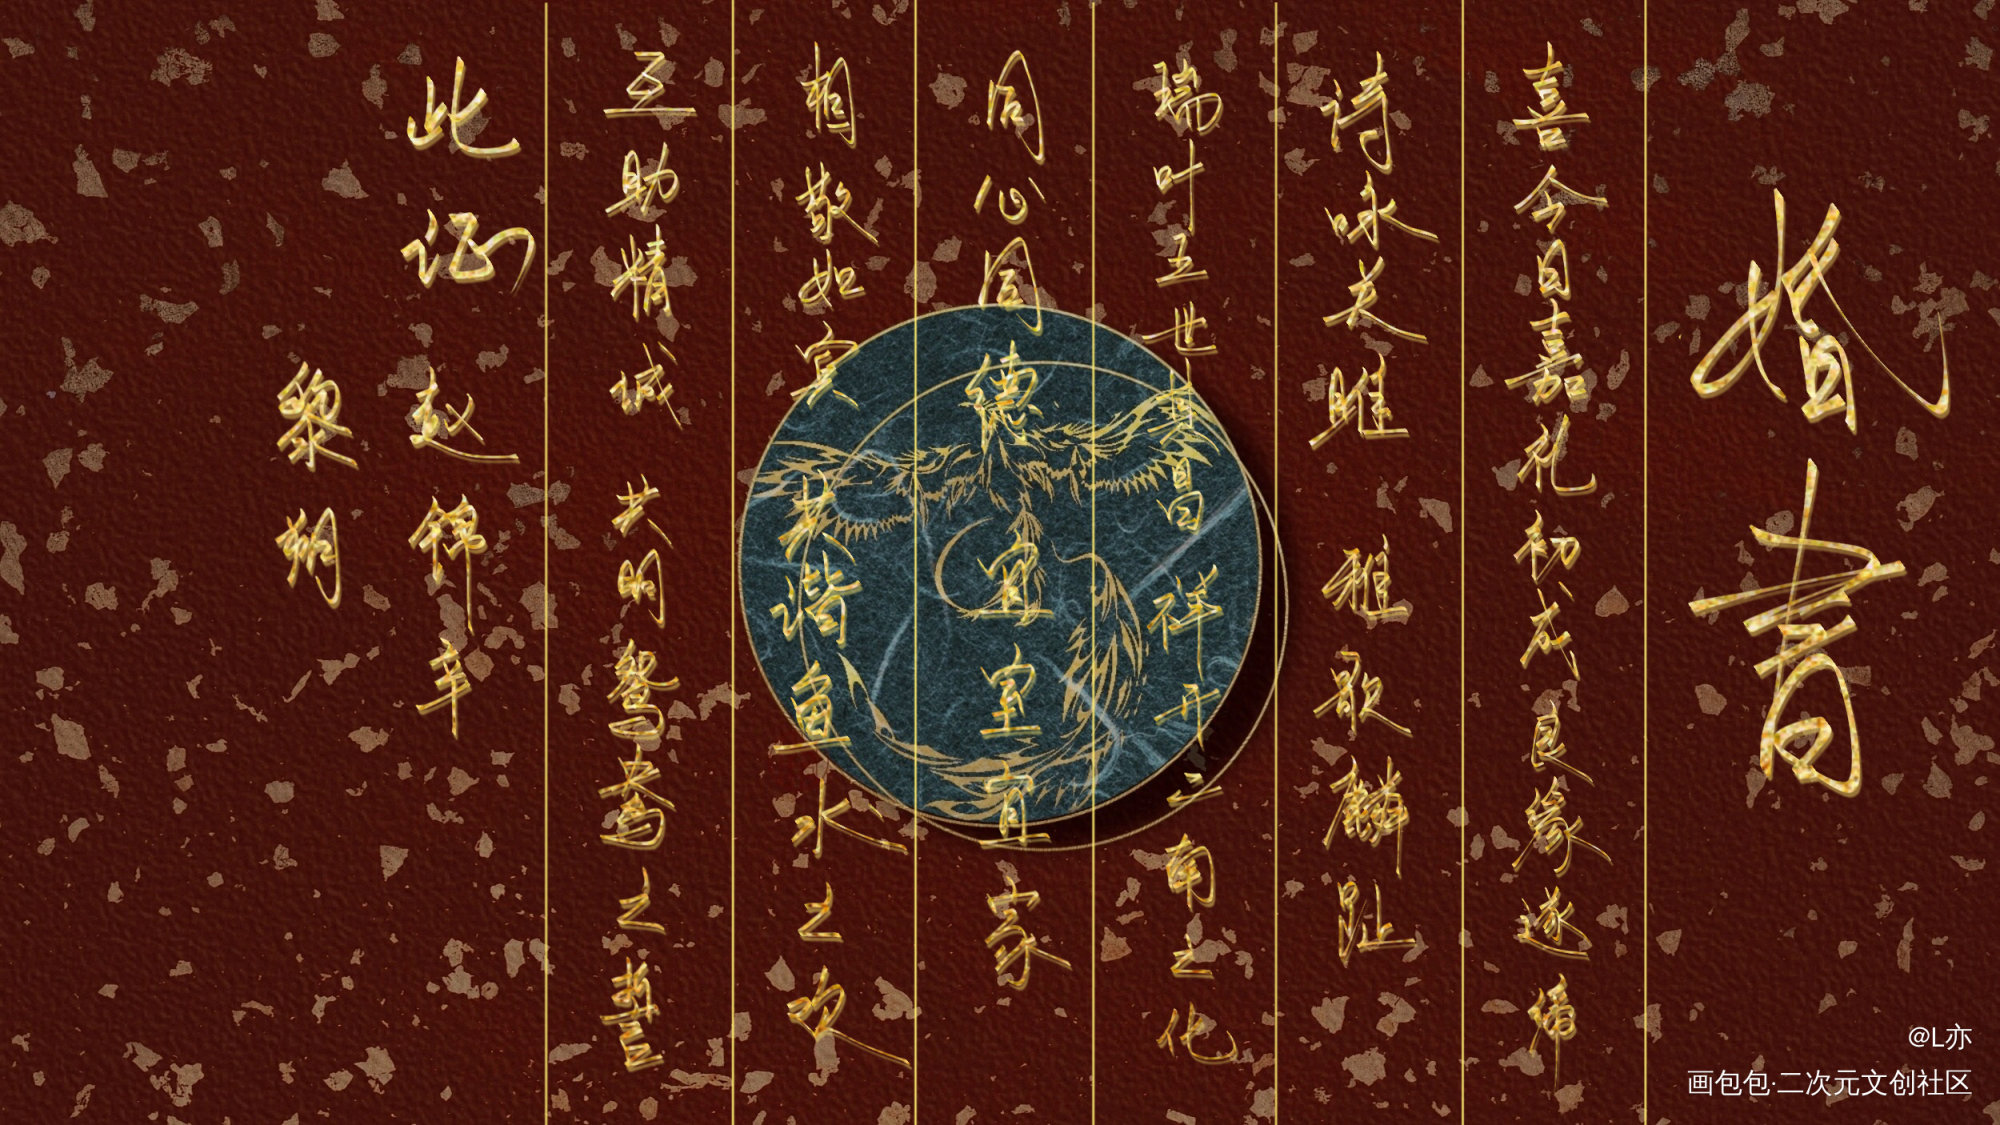 婚书
喜今日嘉礼初成 良缘遂缔
诗咏关雎 雅歌麟趾
瑞叶五世其昌 祥开二南之化
同心同德 宜室宜家
相敬如宾 永谐鱼水之欢
互助精诚 共盟鸳鸯之誓
此证 赵锦辛
黎朔
@L亦
画包包·二次元文创社区